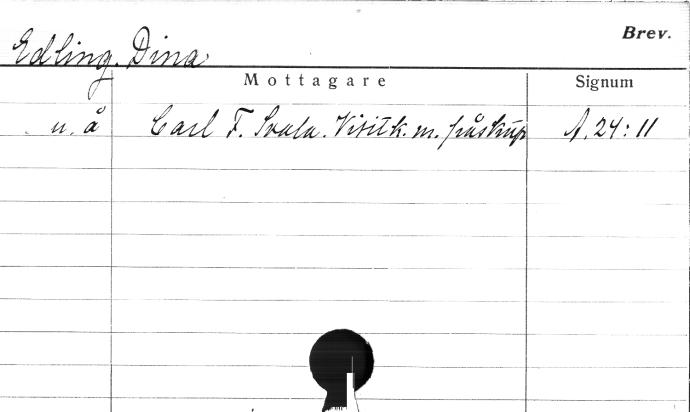 Brev.
Edling. Dina
Mottagare Signum
u. å Carl F. Svala. Visitk. m. påskrip A. 24:11